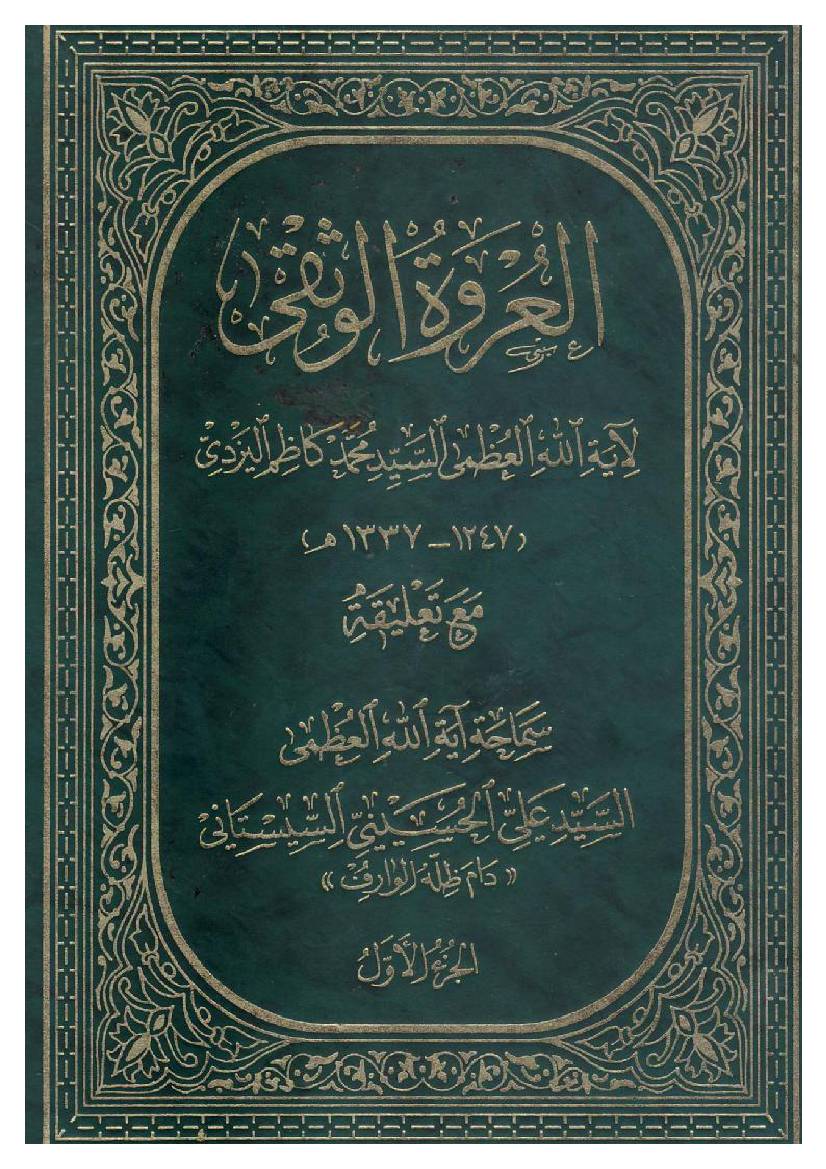 العُرْوَةُ الوُثْقى
لِآيَةِ اللهِ العُظْمى السَّيِّد مُحَمَّد كَاظِم اليَزْدِيّ
(١٢٤٧ – ١٣٣٧ هـ)
مَعَ تَعْلِيقَةِ
سَمَاحَةِ آيَةِ اللهِ العُظْمى
السَّيِّدِ عَلِيّ الحُسَيْنِيّ السِّيسْتَانِيّ
«دَامَ ظِلُّهُ الوَارِفُ»
الجُزْءُ الأَوَّلُ